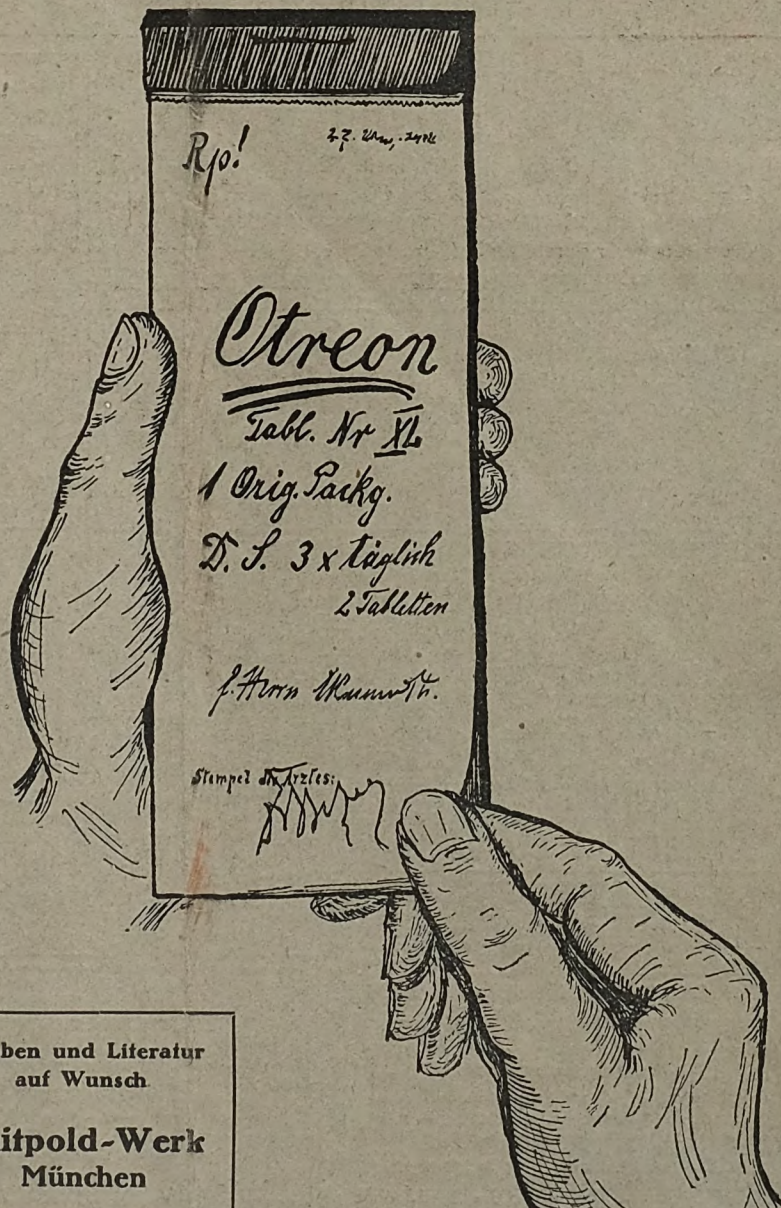 Rp!
Otreon
Tabl. Nr XL
1 Orig. Packg.
D. S. 3 x täglich
2 Tabletten
f. Herrn
Stempel des Arztes:
ben und Literatur
auf Wunsch
itpold-Werk
München